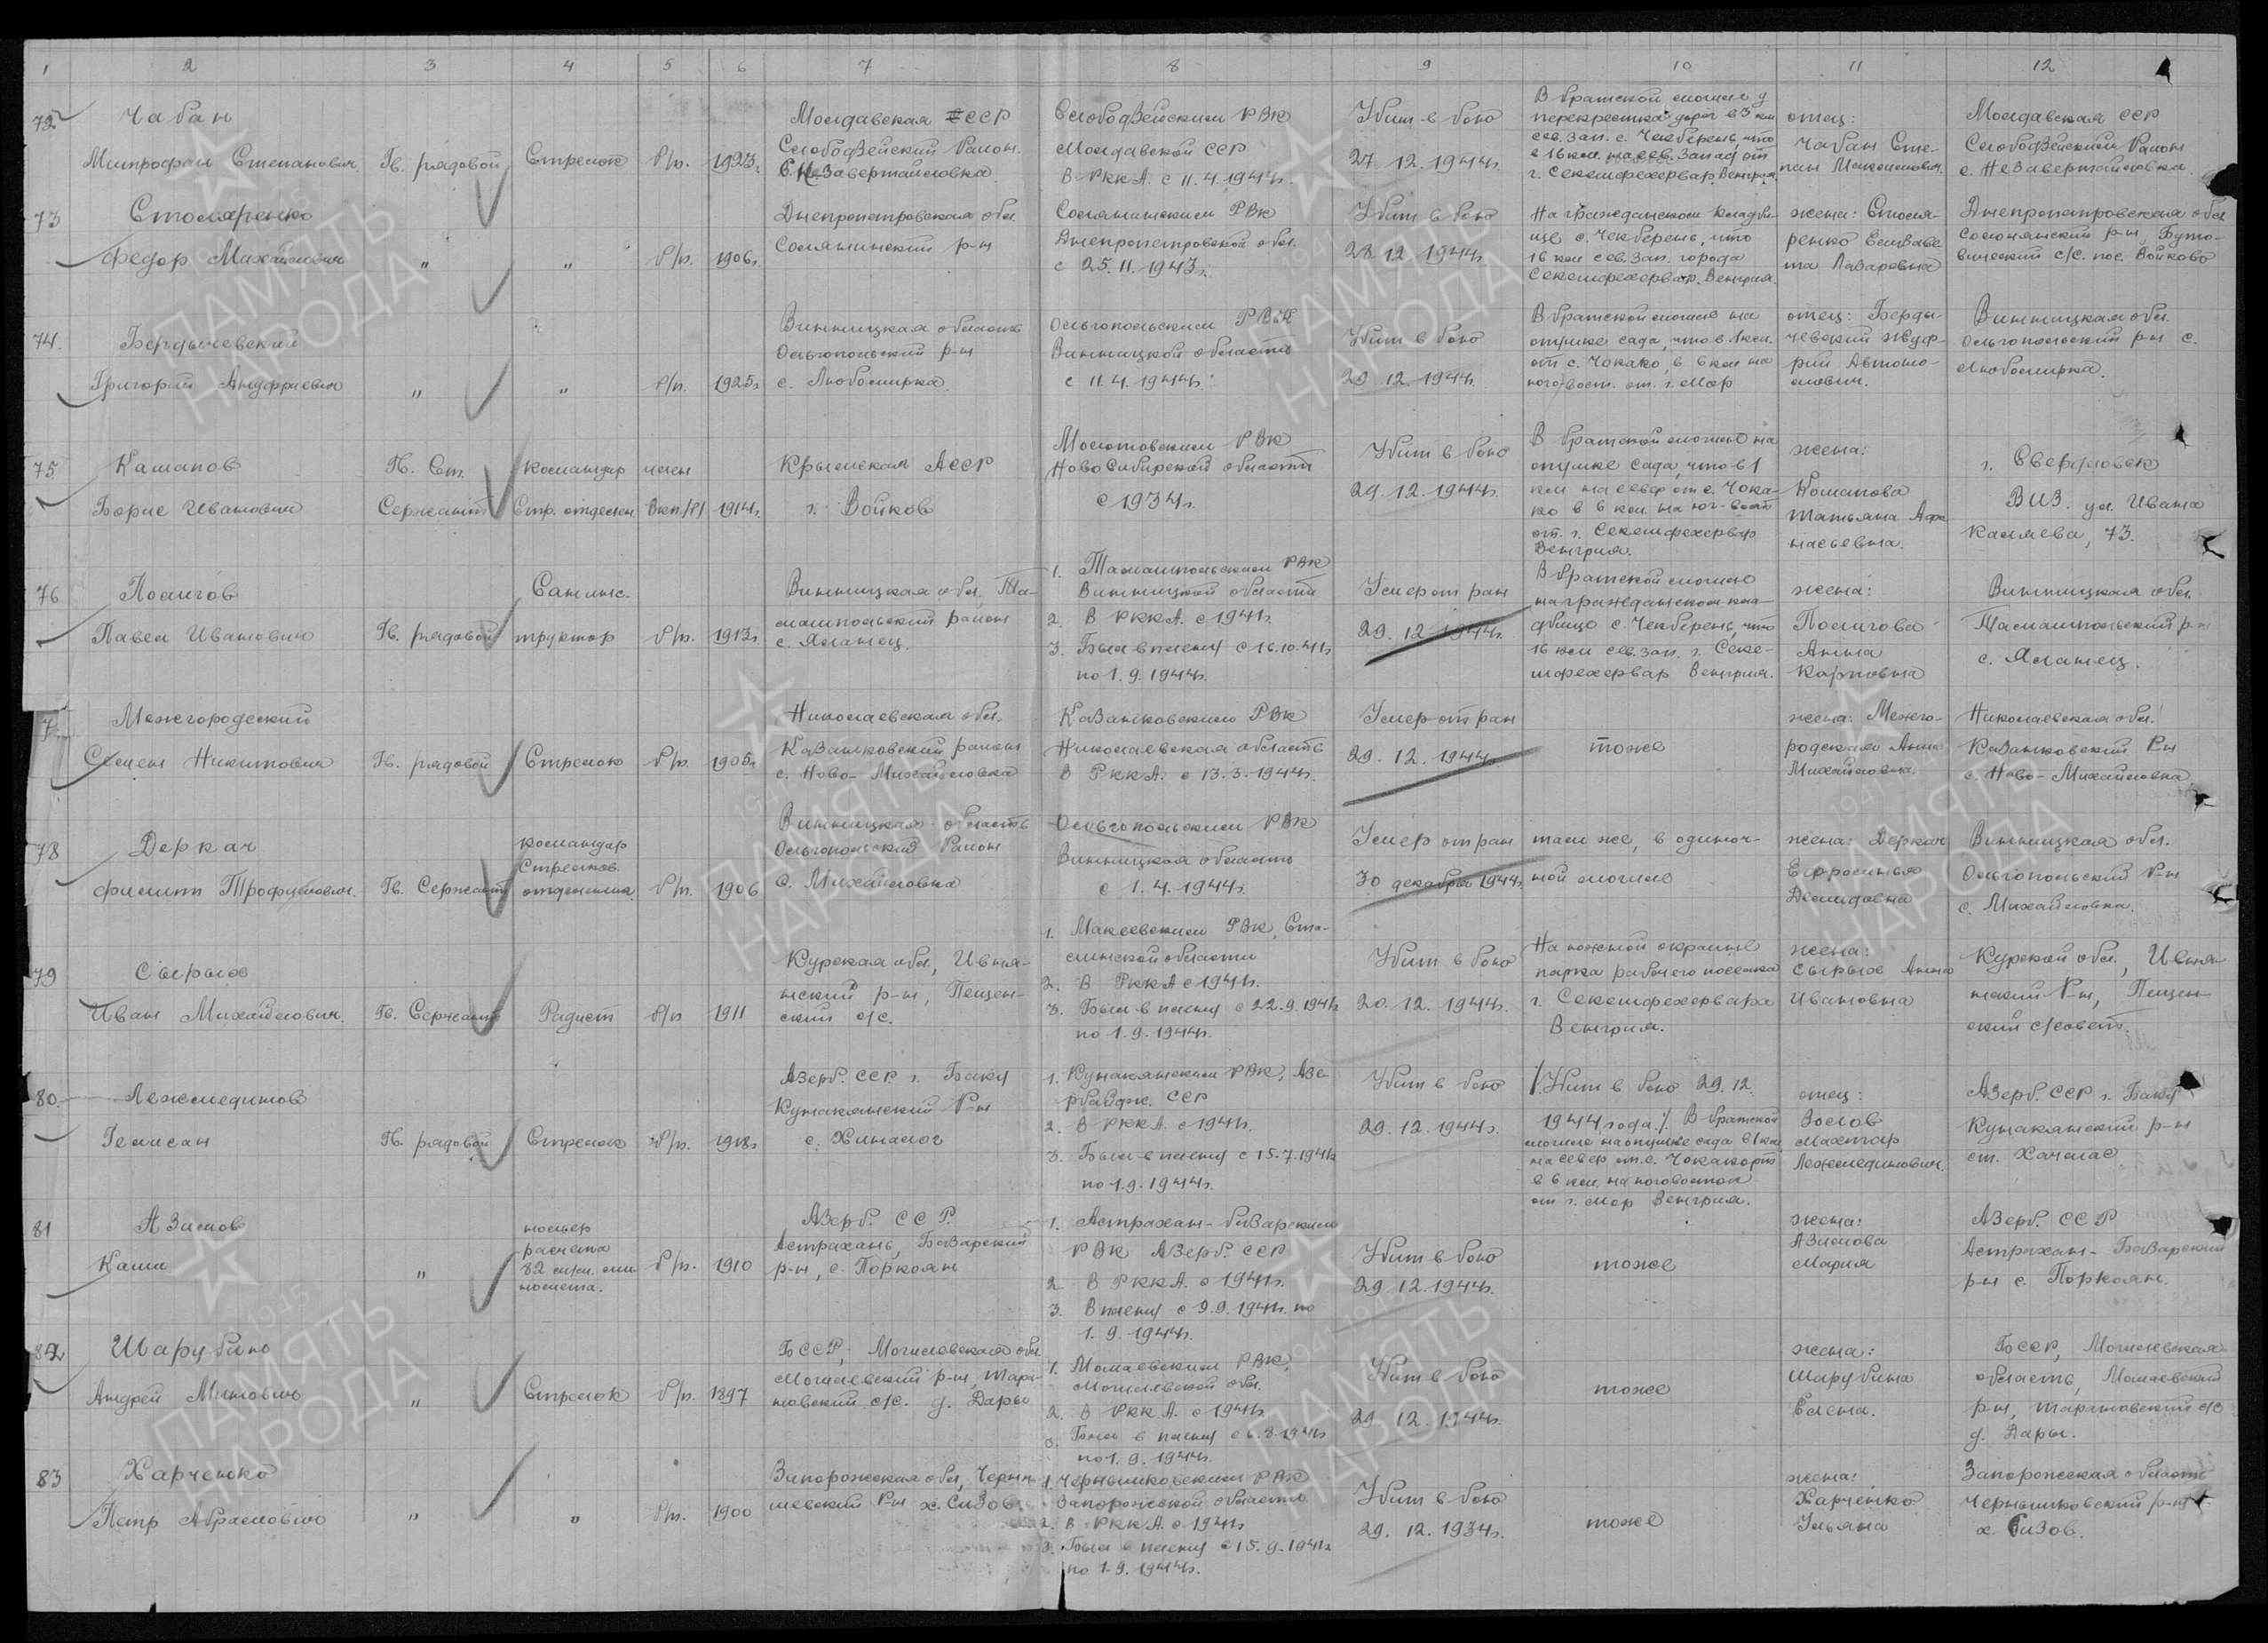 1 2 3 4 5 6 7 8 9 10 11 12
72
Чабан
Митрофан Степанович
Гв. рядовой
Стрелок
б/п.
1923г.
Молдавская ССР
Слободзейский Район.
с. Незавертайловка
Слободзейским РВК
Молдавской ССР
В РККА. с 11.4.1944г.
Убит в бою
27.12.1944г.
В братской могиле у
перекрестка дорог в 3 км
сев. зап. с. Чекберень, что
в 16 км. на сев. запад от
г. Секешфехервар. Венгрия.
отец:
Чабан Сте-
пан Максимович.
Молдавская ССР
Слободзейский Район
с. Незавертайловка.
73
Столяренко
Федор Михайлович
"
"
б/п.
1906г.
Днепропетровская обл.
Солянинский р-н
Солянинским РВК
Днепропетровской обл.
с 25.11.1943г.
Убит в бою
28.12.1944г.
На гражданском кладби-
ще с. Чекберень, что
16 км сев. зап. города
Секешфехервар. Венгрия.
жена: Столя-
ренко Елизаве
та Лазаревна
Днепропетровская обл
Солонянский р-н,
с/с. пос. Войково
74.
Бердычевский
Григорий Ануфриевич
"
"
б/п.
1925г.
Винницкая область
Ольгопольский р-н
с. Любомирка.
Ольгопольским РВК
Винницкой области
с 11.4.1944г.
Убит в бою
29.12.1944г.
В братской могиле на
опушке сада, что в 1 км.
от с. Чокако, в 6 км на
юговост. от г. Мор
отец: Берды-
чевский
Винницкая обл.
Ольгопольский р-н с.
Любомирка.
75.
Борис Иванович
Гв. Ст.
Сержант
Командир
Стр. отделен.
член
Вкп/б/
1914г.
Крымская АССР
г. Войков
Молотовским РВК
НовоСибирской области
с 1934г.
Убит в бою
29.12.1944г.
В братской могиле на
опушке сада, что в 1
км на север от с. Чока-
ко в 6 км. на юг-вост
от г. Секешфехервар
Венгрия.
жена:
Татьяна Афа
насьевна.
г. Свердловск
ВИЗ. ул. Ивана
Каляева, 73.
76
Полигов
Павел Иванович
Гв. рядовой
Санинс.
труктор
б/п.
1913г.
Винницкая обл. То-
машпольский район
с. Яланец.
1. Томашпольским РВК
Винницкой области
2. В РККА. с 1941г.
3. Был в плену с 16.10.41г
по 1.9.1944г.
Умер от ран
29.12.1944г.
В братской могиле
на гражданском кла-
дбище с. Чекберень, что
16 км сев. зап. г. Секе-
шфехервар Венгрия.
жена:
Полигова
Анна
Карповна
Винницкая обл
Томашпольский р-н
с. Яланец.
7
Межгородский
Семен Никитович
Гв. рядовой
Стрелок
б/п.
1905г.
Николаевская обл.
Казанковский район
с. Ново-Михайловка
Казанковским РВК
Николаевская область
В РККА. с 13.3.1944г.
Умер от ран
29.12.1944г.
тоже
жена: Межго-
родская Анна
Михайловна.
Николаевская обл.
Казанковский Р-н
с. Ново-Михайловка
78
Деркач
Филипп Трофимович.
Гв. Сержант
Командир
Стрелков.
отделения
б/п.
1906
Винницкая область
Ольгопольский Район
с. Михайловка
Ольгопольским РВК
Винницкая область
с 1.4.1944г.
Умер от ран
30 декабря 1944г.
там же, в одиноч-
ной могиле
жена: Деркач
Ефросинья
Демидовна
Винницкая обл.
Ольгопольский Р-н
с. Михайловка.
79
Сырых
Иван Михайлович.
Гв. Сержант
Радист
б/п
1911
Курская обл, Ивня-
нский р-н, Пещен-
ский с/с.
1. Макеевским РВК, Ста-
линской области
2. В РККА с 1941г.
3. Был в плену с 22.9.1941г
по 1.9.1944г.
Убит в бою
20.12.1944г.
На южной окраине
парка рабочего поселка
г. Секешфехервара
Венгрия.
жена:
Сырых Анна
Ивановна
Курской обл., Ивня-
нский Р-н, Пещен
ский с/совет.
80.
Лежмединов
Гв. рядовой
Стрелок
б/п.
1918г
Азерб. ССР. г. Баку
Кунакянский Р-н
с. Хиналог
1. Кунакянским РВК, Азе-
рбайдж. ССР
2. В РККА. с 1941г.
3. Был в плену с 15.7.1941г
по 1.9.1944г.
Убит в бою
29.12.1944г.
/Убит в бою 29.12.
1944 года./ В братской
могиле на опушке сада в 1 км
на север от с.
в 6 км. на юговосток
от г. Мор Венгрия.
отец:
Лежмединович.
Азерб. ССР г. Баку
Кунакянский р-н
81
Азимов
"
номер
расчета
82 м/м. ми
номета.
б/п.
1910
Азерб. ССР.
Астрахань, Базарский
р-н, с. Поркоян
1. Астрахан-Базарским
РВК Азерб. ССР
2. В РККА. с 1941г.
3. В плену с 9.9.1941г. по
1.9.1944г.
Убит в бою
29.12.1944г.
тоже
жена:
Азимова
Мария
Азерб. ССР
Астрахан-Базарский
р-н с. Поркоян.
82
Шарубино
Андрей Минович
"
Стрелок
б/п.
1897
БССР, Могилевская обл
с/с. д. Дары
РВК,
Могилевской обл.
2. В РККА. с 1941г.
3. Был в плену с 6.8.1941г
по 1.9.1944г.
Убит в бою
29.12.1944г.
тоже
жена:
Шарубина
Елена.
БССР, Могилевская
область,
д. Дары.
83
Харченко
Петр Абрамович
"
"
б/п.
1900
Запорожская обл, Черны-
шевский Р-н х. Сизов.
1. Чернышковским РВК
Запорожской области
2. В РККА. с 1941г
3. Был в плену с 15.9.1941г
по 1.9.1944г.
Убит в бою
29.12.1934г.
тоже
жена:
Харченко
Ульяна
Запорожская область
Чернышковский р-н
х. Сизов.
ПАМЯТЬ
НАРОДА
1941-1945